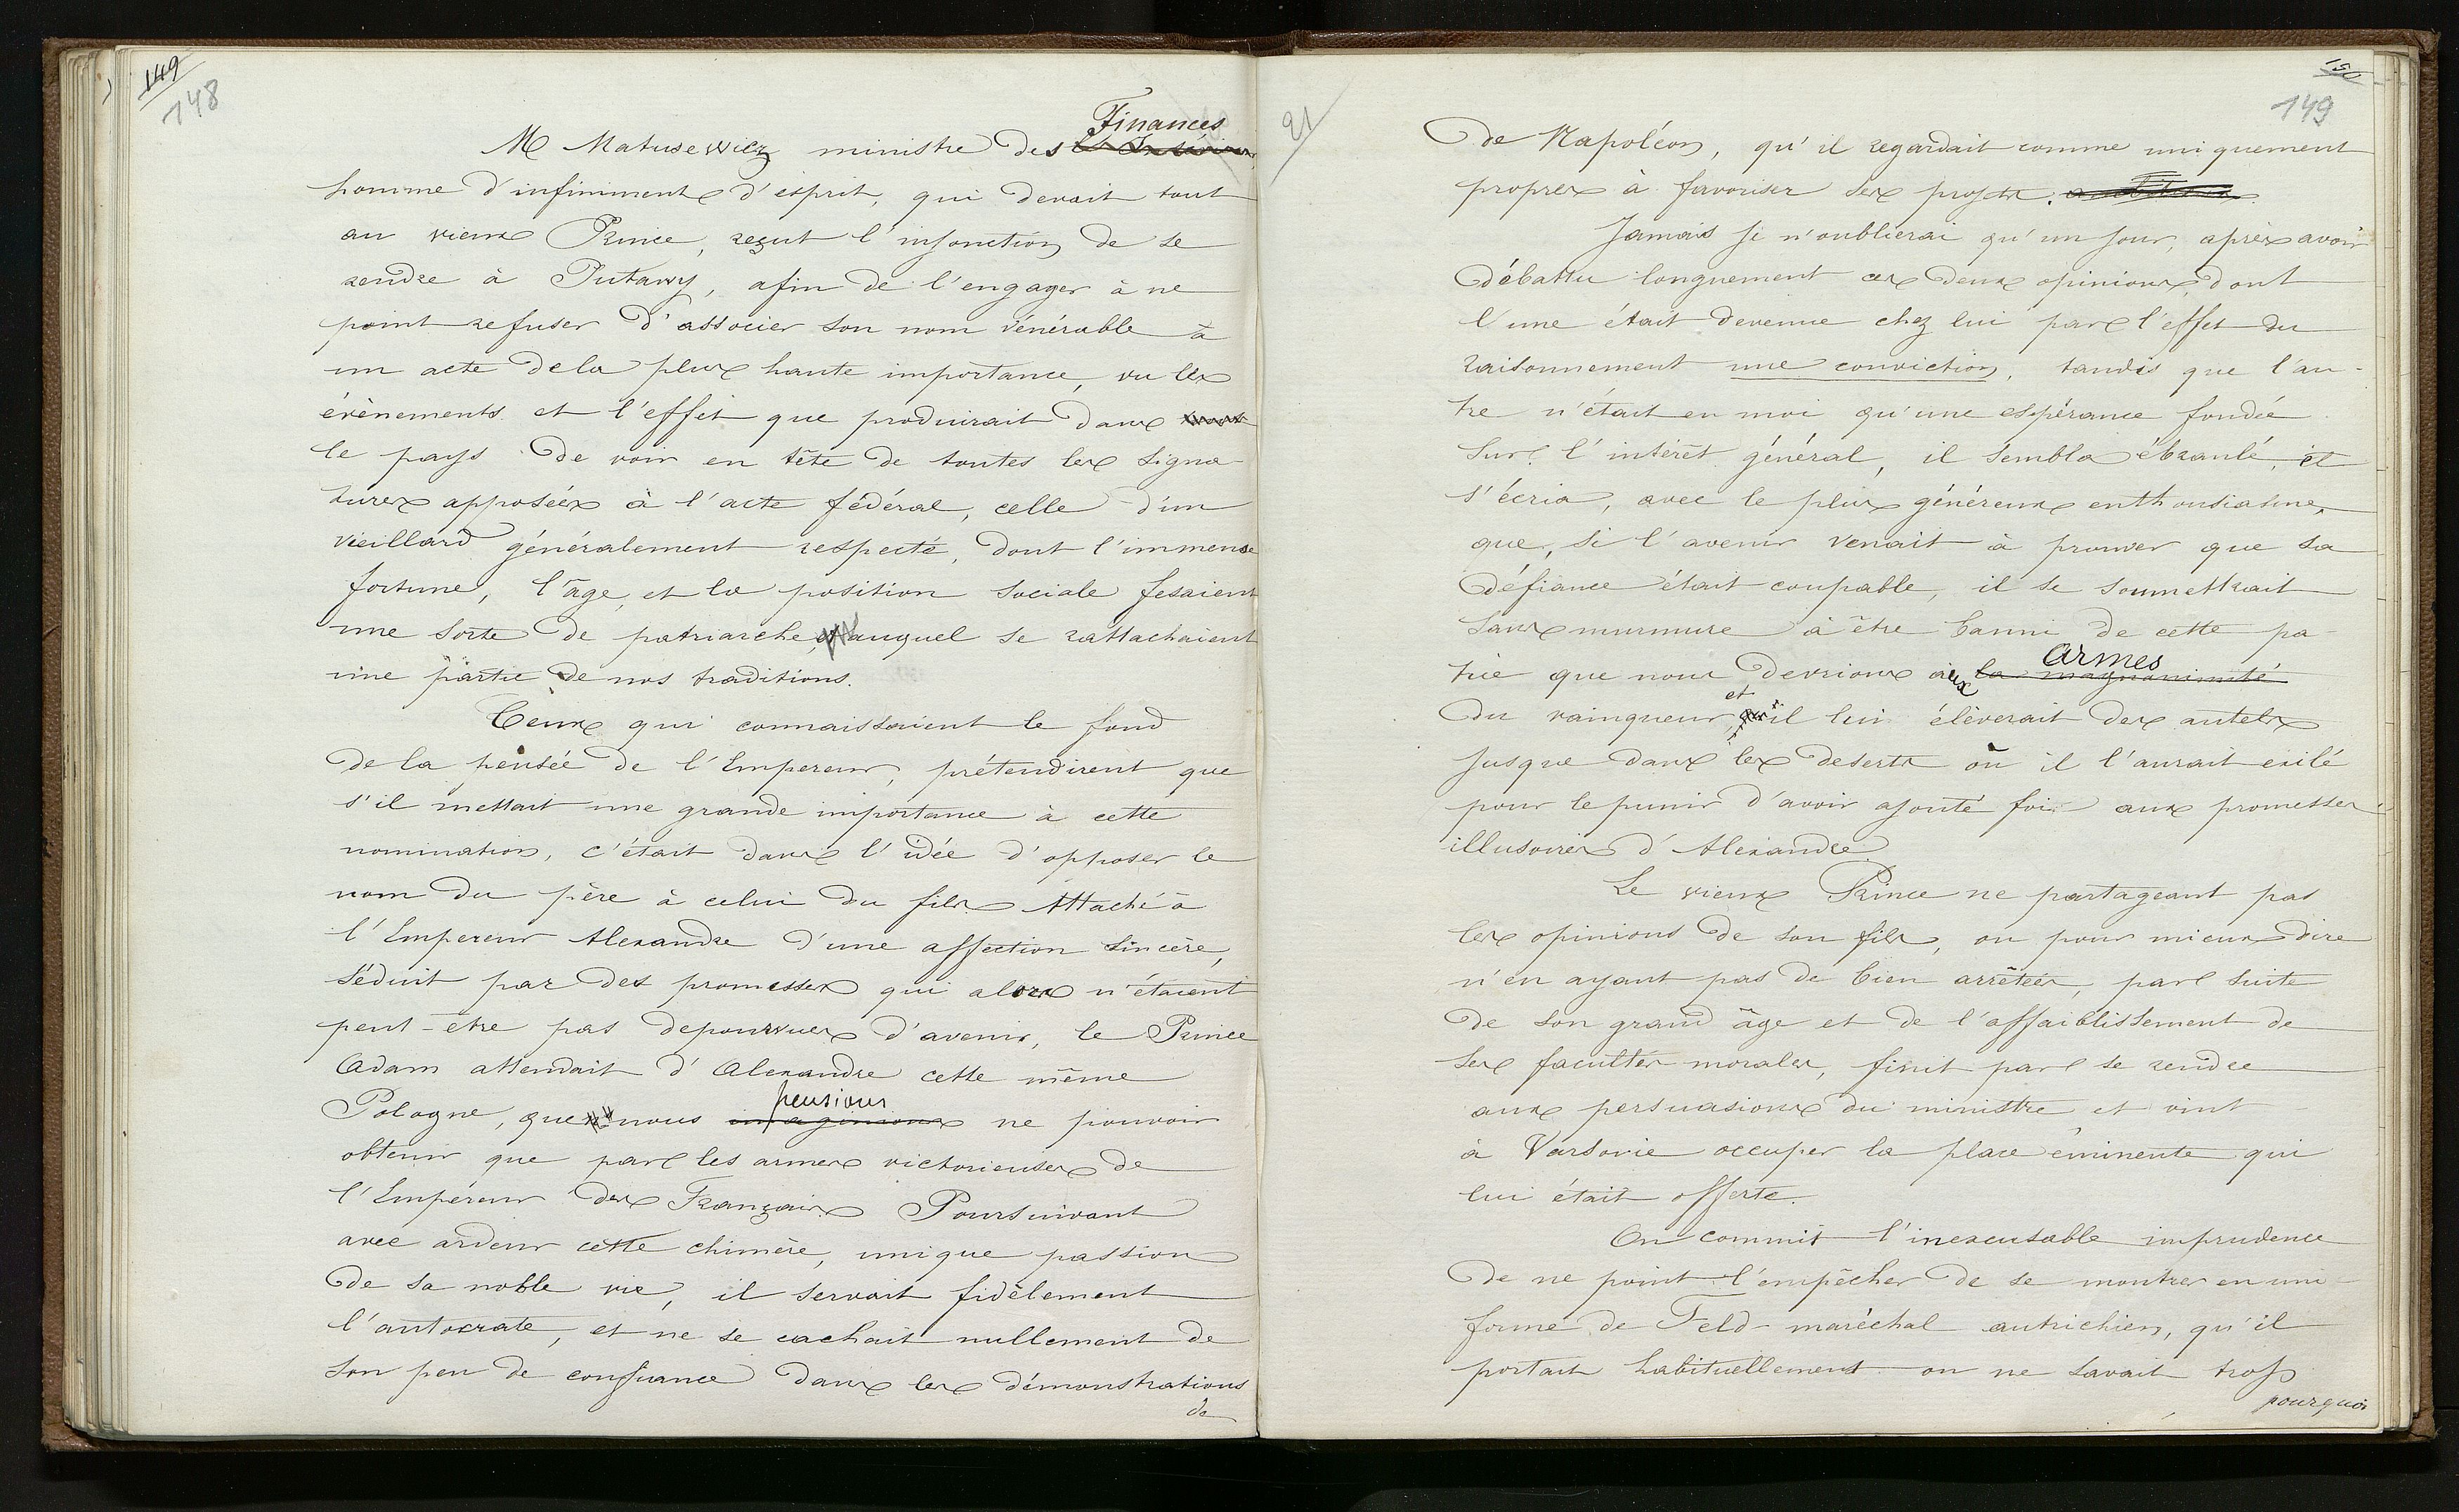 149
148
Finances
M Matusewicz ministre des l'Intérieur,
homme d'infiniment d'esprit, qui devait tout
au vieux Prince, reçut l'injonction de se
rendre à Putawy, afin de l'engager à ne
point refuser d'associer son nom vénérable à
un acte de la plus haute importance, vu les
évènements et l'effet que produirait dans
le pays de voir en tête de toutes les signa-
tures apposées à l'acte fédéral, celle d'un
vieillard généralement respecté, dont l'immense
fortune, l'âge, et la position sociale fesaient
une sorte de patriarche, auquel se rattachaient
une partie de nos traditions.
Ceux qui connaissaient le fond
de la pensée de l'Empereur, prétendirent que
s'il mettait une grande importance à cette
nomination, c'était dans l'idée d'opposer le
nom du père à celui du fils. Attaché à
l'Empereur Alexandre d'une affection sincère,
séduit par des promesses qui alors n'étaient
peut-être pas depourvues d'avenir, le Prince
Adam attendait d'Alexandre cette même
pensions
Pologne, que nous imaginions ne pouvoir
obtenir que par les armes victorieuses de
l'Empéreur des Français. Poursuivant
avec ardeur cette chimère, unique passion
de sa noble vie, il servait fidèlement
l'autocrate, et ne se cachait nullement de
son peu de confiance dans les démonstrations
de
21
150
149
de Napoléon, qu'il regardait comme uniquement
propres à favoriser ses projets.
Jamais je n'oublierai qu'un jour, après avoir
débattu longuement ces deux opinions, dont
l'une était devenue chez lui par l'effet du
raisonnement une conviction, tandis que l'au-
tre n'était en moi qu'une espérance fondée
sur l'intérêt général, il sembla ébranlé, et
s'écria, avec le plus généreux enthousiasme,
que, si l'avenir venait à prouver que sa
défiance était coupable, il se soumettrait
sans murmure à être banni de cette pa-
armes
trie que nous devrions aux la magnanimité
et
du vainqueur, qu'il lui élèverait des autels
jusque dans les deserts où il l'aurait exilé
pour le punir d'avoir ajouté foi aux promesses
illusoires d'Alexandre.
Le vieux Prince ne partageant pas
les opinions de son fils, ou pour mieux dire
n'en ayant pas de bien arrêtées, par suite
de son grand âge et de l'affaiblissement de
ses facultés morales, finit par se rendre
aux persuasions du ministre et vint
à Varsovie occuper la place éminente qui
lui était offerte.
On commit l'inexcusable imprudence
de ne point l'empêcher de se montrer en uni-
forme de Feld-maréchal autrichien, qu'il
portait habituellement on ne savait trop
pourquoi